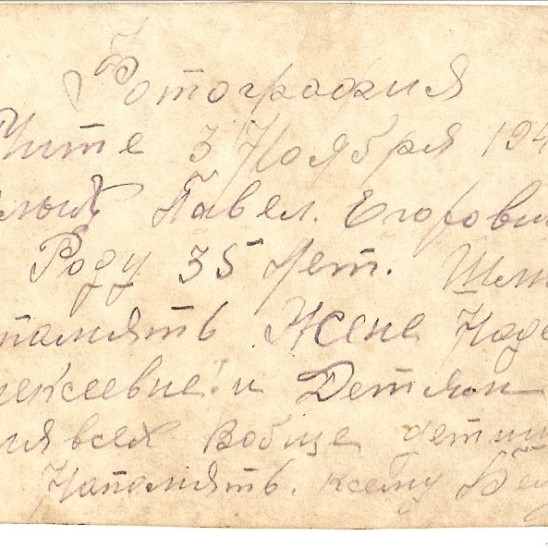 Фотография
Чите 3 Ноября 194
лых Павел. Егорови
Роду 35 Лет. Шлю
память Жене Наде
лексеевне и Детям
всех вобще дети
Напамять. ксему Бел